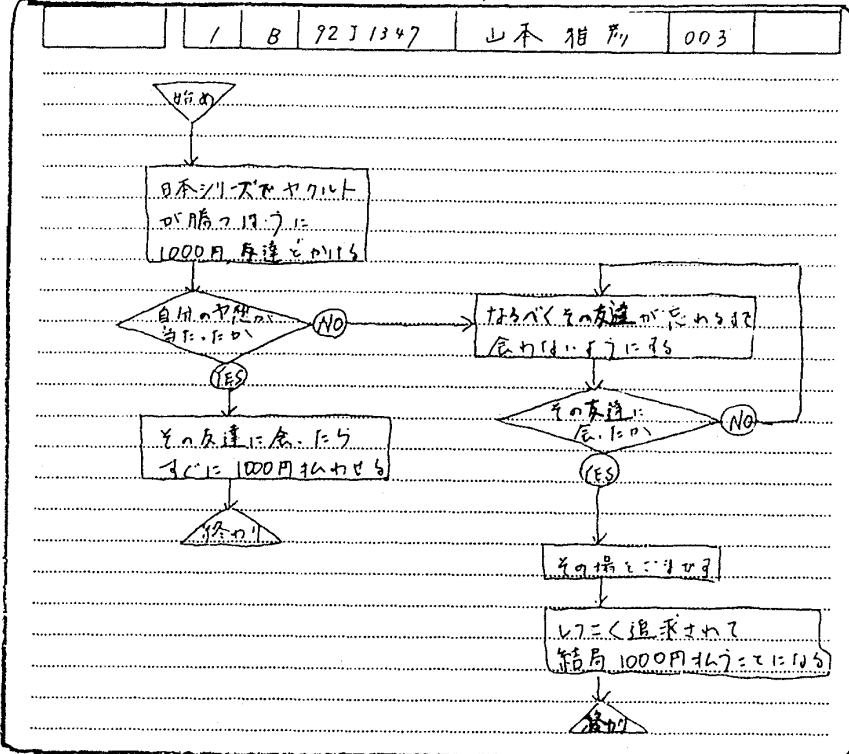 1 B 92J1347 山本 雅彦 003
始め
日本シリーズでヤクルト
が勝つほうに
1000円、友達とかける
自分の予想が
当たったか
NO
YES
その友達に会ったら
すぐに1000円払わせる
終わり
なるべくその友達が忘れるまで
会わないようにする
その友達に
会ったか
NO
YES
その場をごまかす
しつこく追求されて
結局1000円払うことになる
終わり